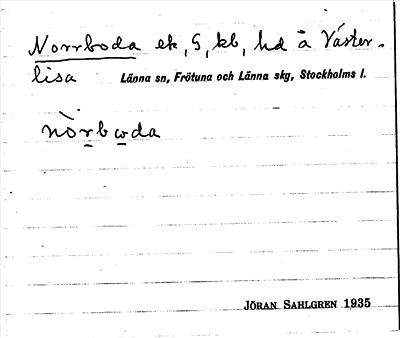 Norrboda ek, G, kb, hd å Väster-
lisa Länna sn, Frötuna och Länna skg, Stockholms l.
nòrbωda
JÖRAN SAHLGREN 1935